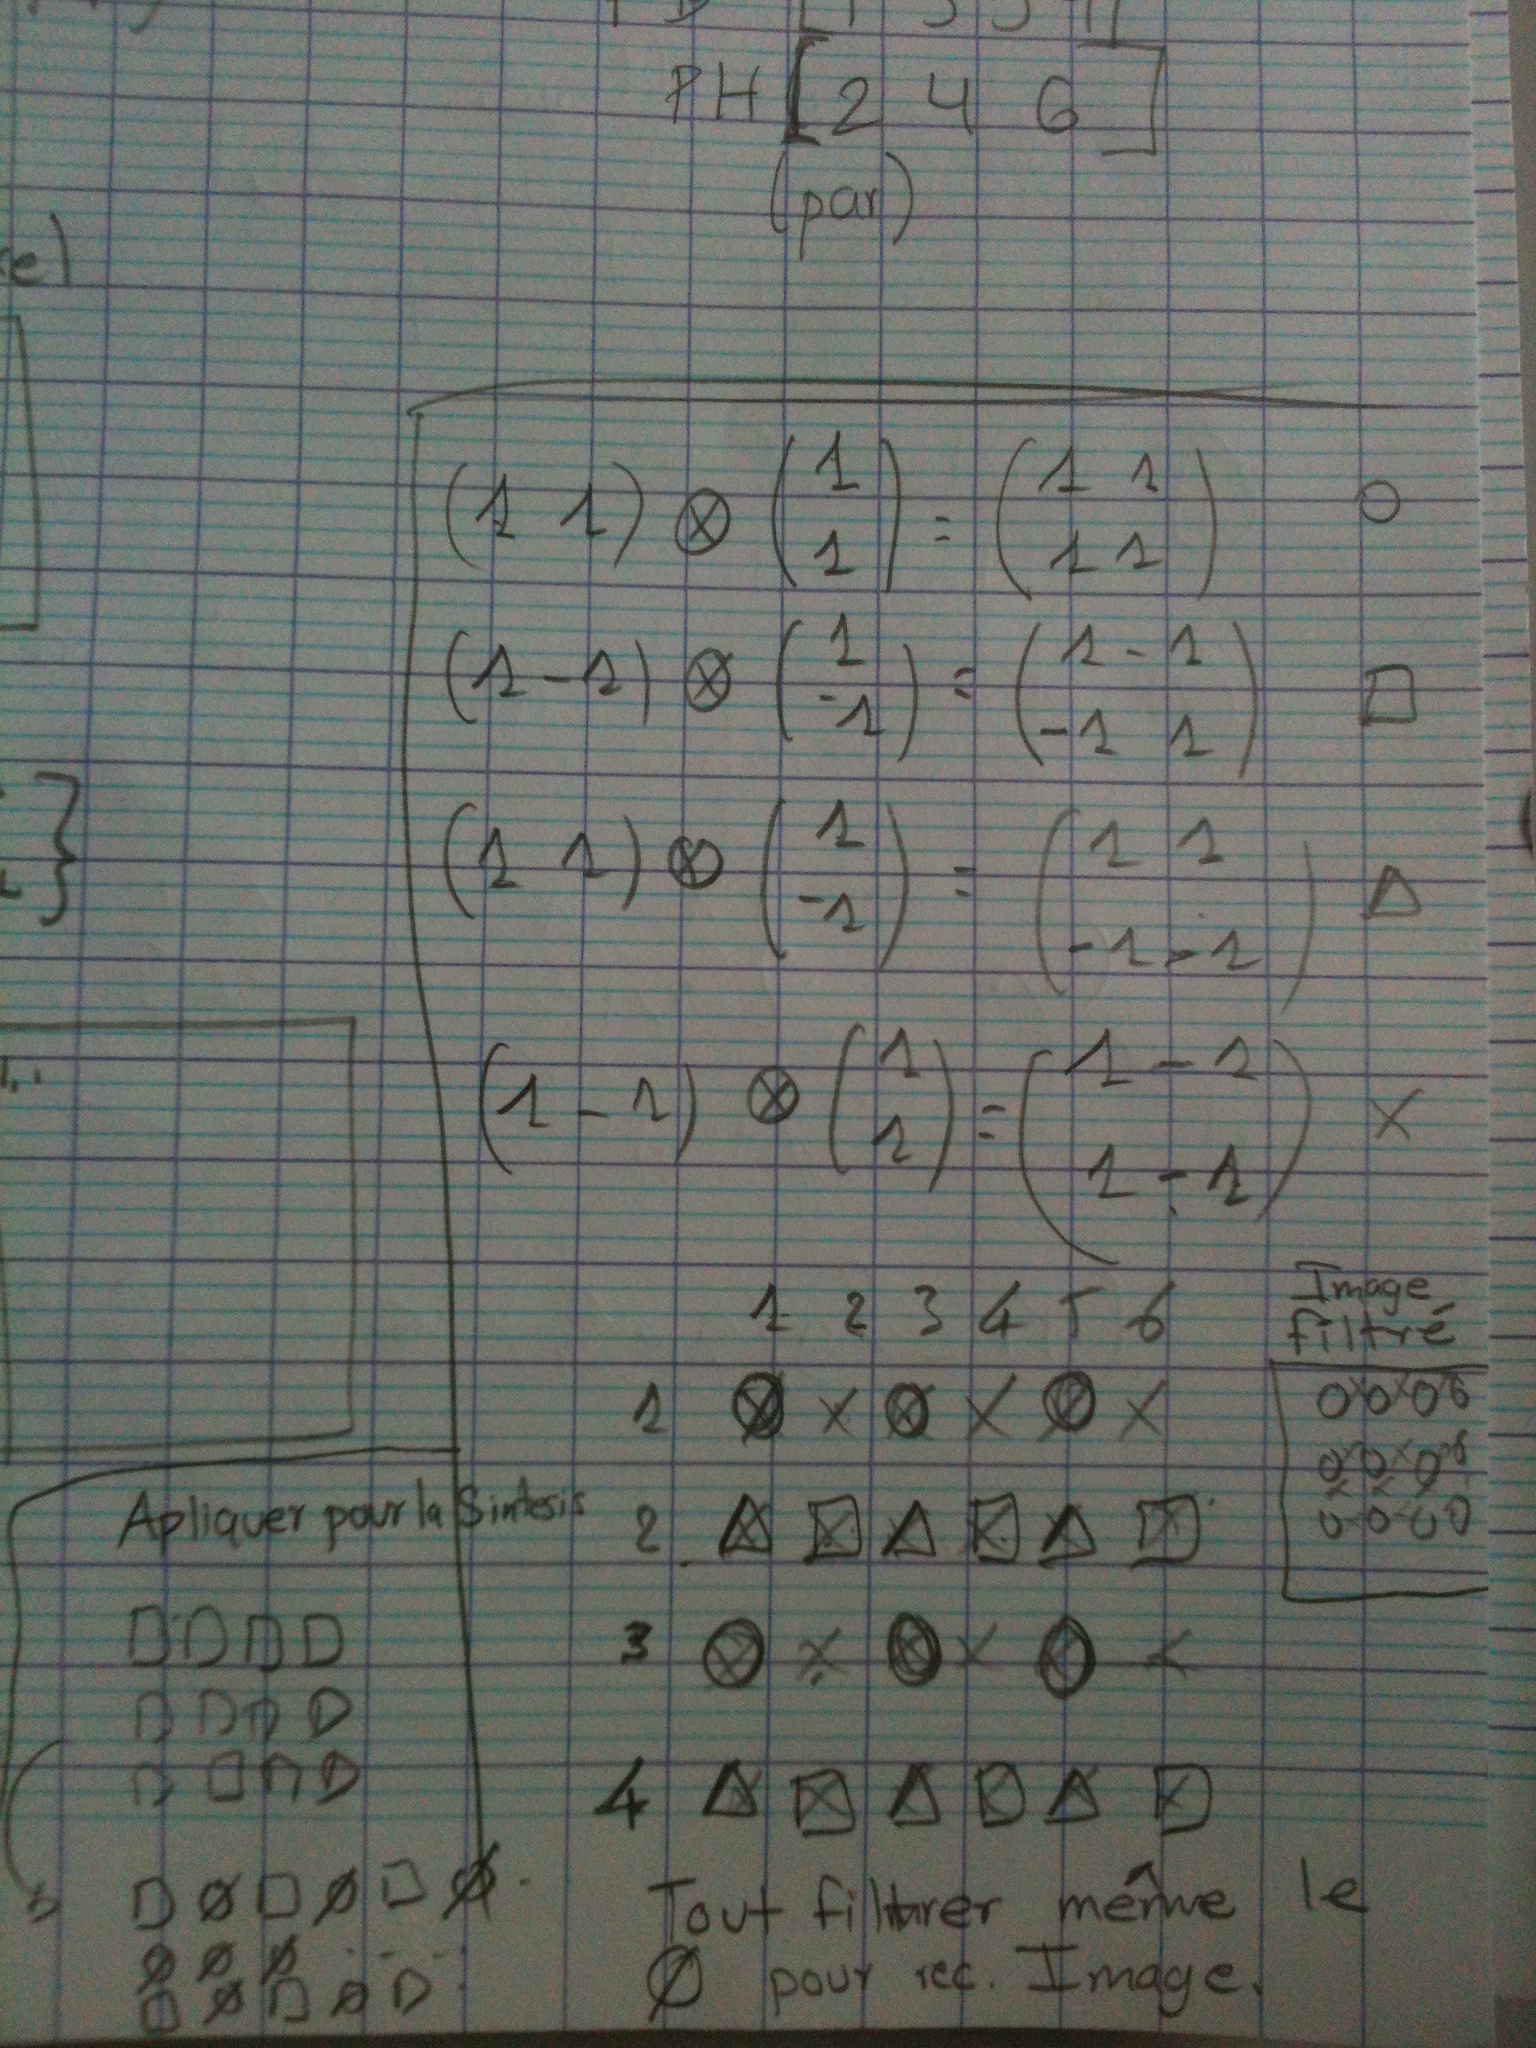 PH [2 4 6]
(par)
(1 1) ⊗ (1 1) = (1 1 1 1) ○
(1 -1) ⊗ (1 -1) = (1 -1 -1 1) □
(1 1) ⊗ (1 -1) = (1 1 -1 -1) △
(1 -1) ⊗ (1 1) = (1 -1 1 -1) ×
1 2 3 4 5 6
Image
filtré
1
Apliquer pour la Sintesis
2
3
4
Tout filtrer même le
Ø pour rec. Image.